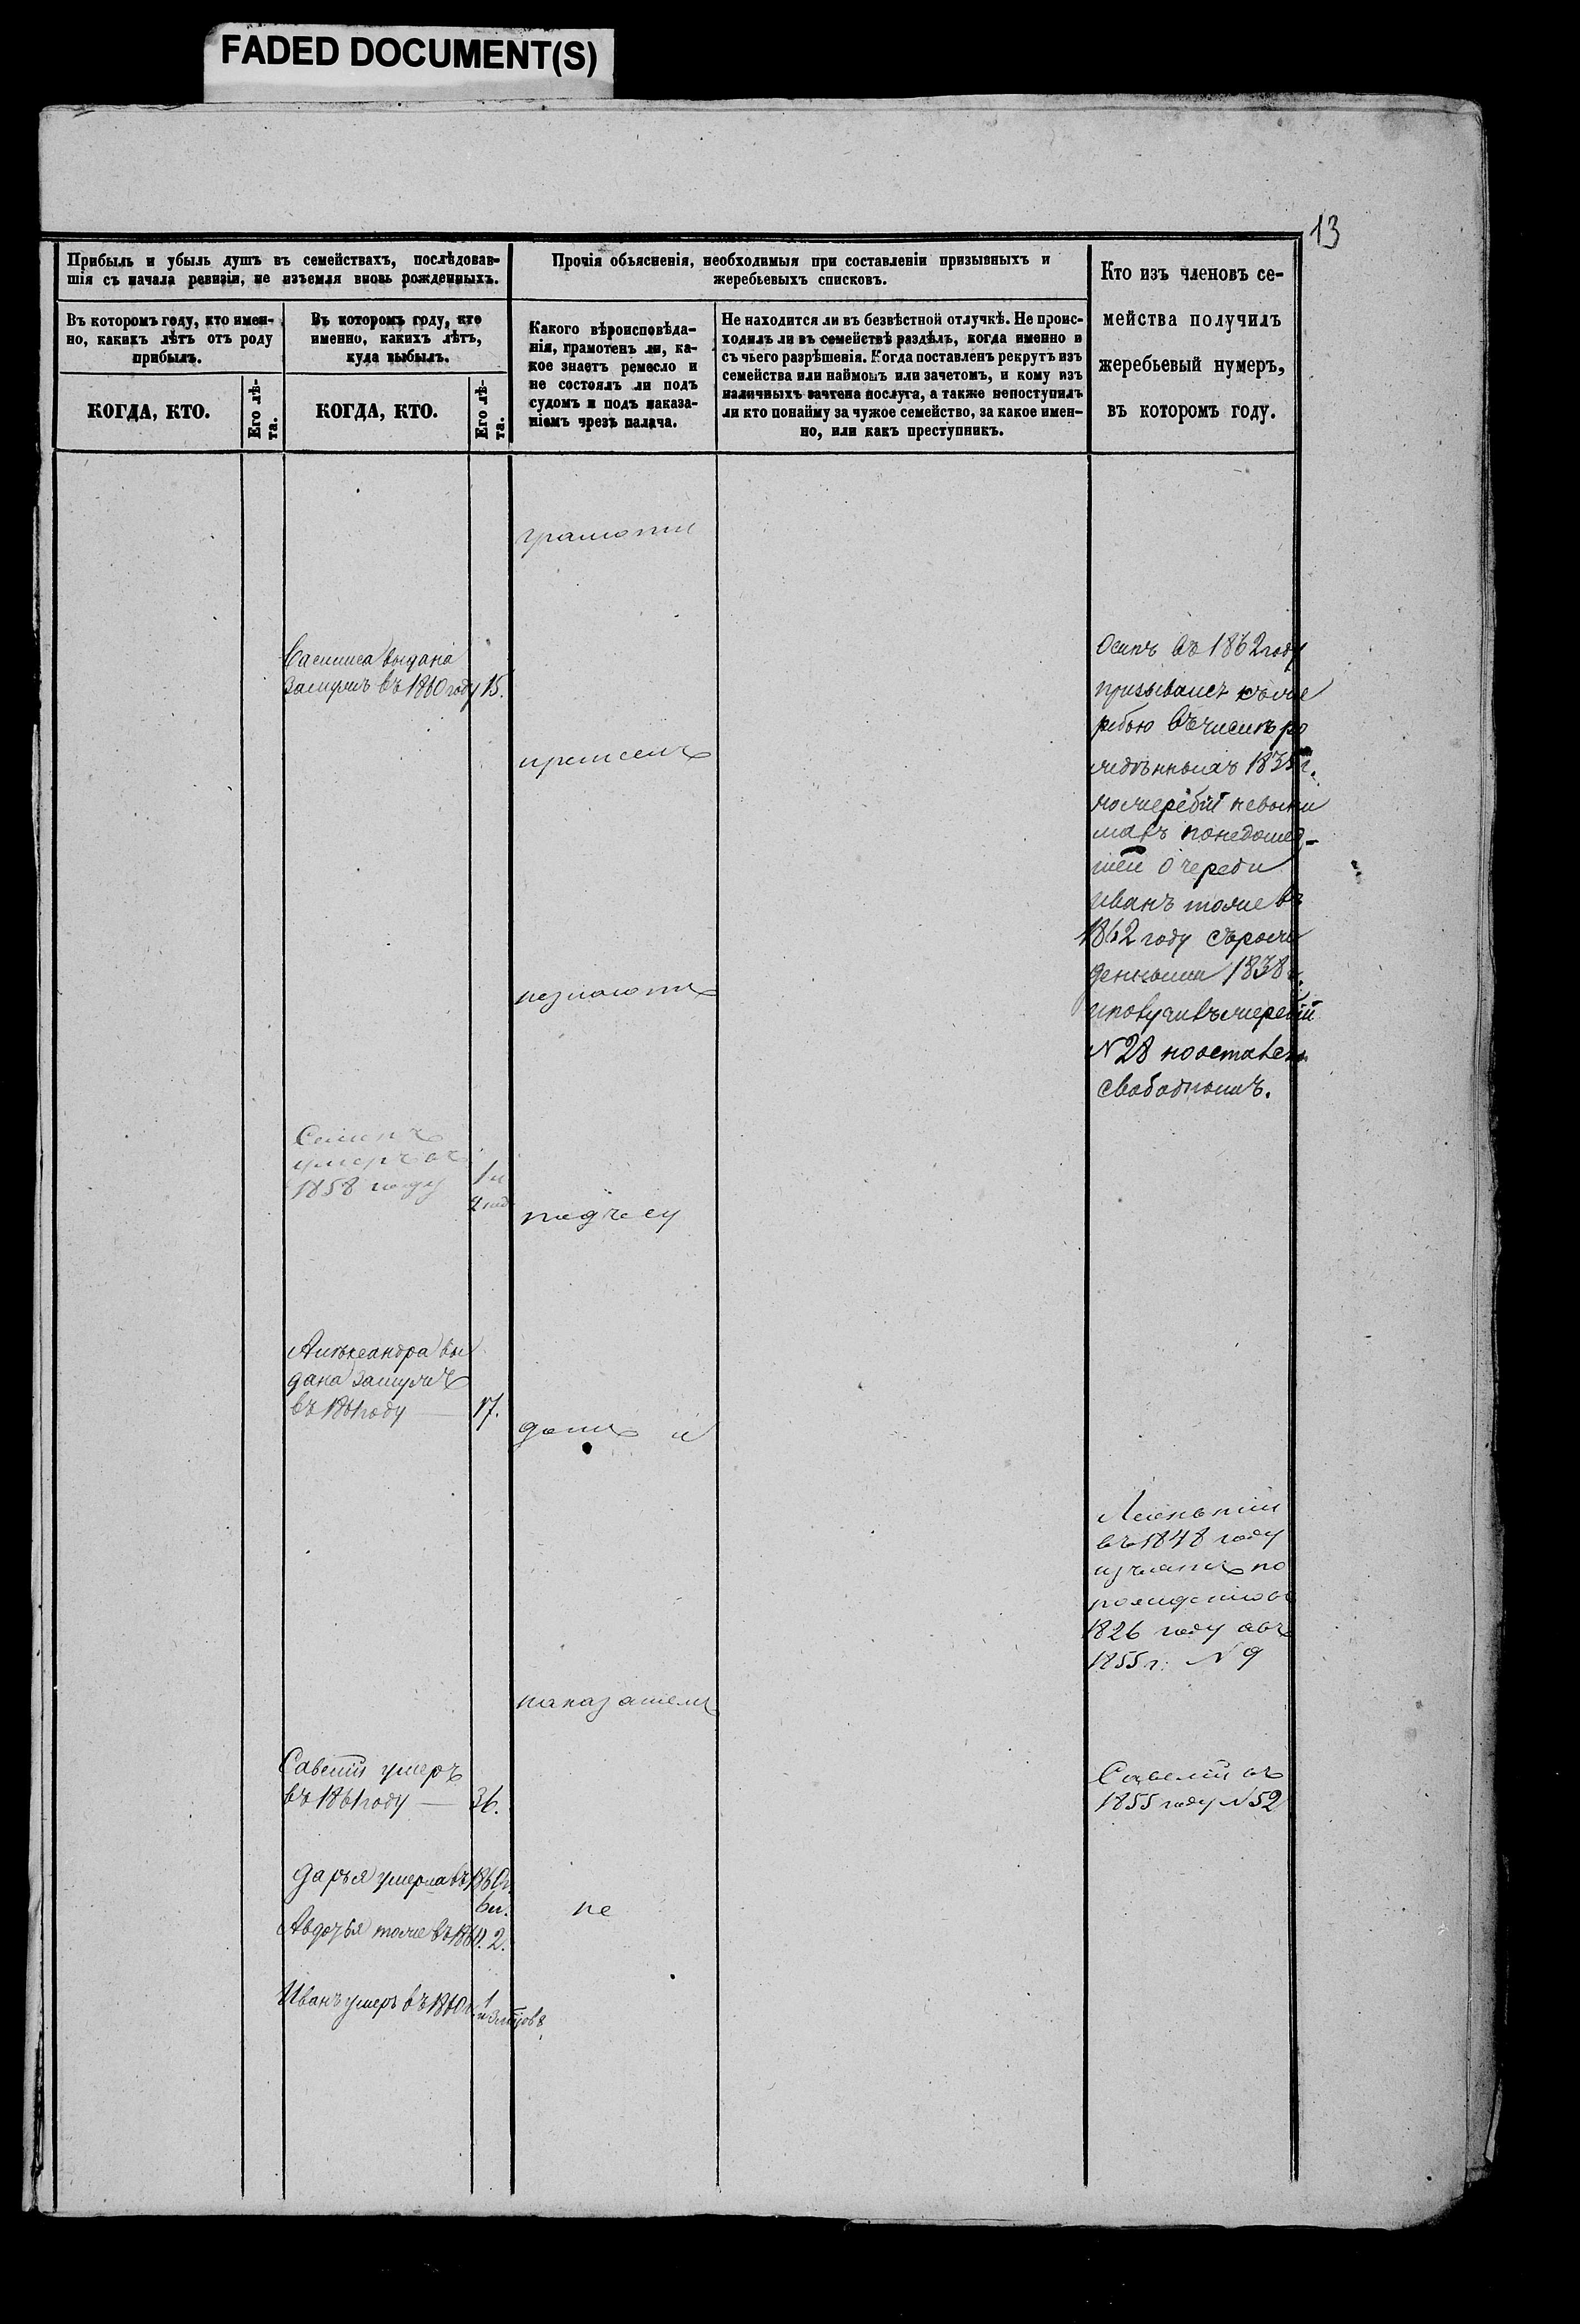 FADED DOCUMENT(S)
13
Прибыль и убыль душъ въ семействахъ, послѣдовав-
шія съ начала ревизіи, не изъемля вновь рожденныхъ.
Прочія объясненія, необходимыя при составленіи призывныхъ и
жеребьевыхъ списковъ.
Кто изъ членовъ се-
мейства получилъ
жеребьевый нумеръ,
въ которомъ году.
Въ которомъ году, кто имен-
но, какихъ лѣтъ отъ роду
прибылъ.
Въ которомъ году, кто
именно, какихъ лѣтъ,
куда выбылъ.
Какого вѣроисповѣда-
нія, грамотенъ ли, ка-
кое знаетъ ремесло и
не состоялъ ли подъ
судомъ и подъ наказа-
ніемъ чрезъ палача.
Не находится ли въ безвѣстной отлучкѣ. Не проис-
ходилъ ли въ семействѣ раздѣлъ, когда именно и
съ чьего разрѣшенія. Когда поставленъ рекрутъ изъ
семейства или наймомъ или зачетомъ, и кому изъ
наличныхъ зачтена послуга, а также непоступилъ
ли кто понайму за чужое семейство, за какое имен-
но, или какъ преступникъ.
КОГДА, КТО.
Его лѣ-
та.
КОГДА, КТО.
Его лѣ-
та.
грамоты
Васлиса выдана
замужъ въ 1860 году 15.
незнаютъ
Семенъ
умеръ въ
1858 году
подъ су
Александра вы
дана замужъ
въ 1861 году — 17.
домъ и
наказаніемъ
Савелій умеръ
въ 1861 году — 36.
Дарья умерла въ 1860 г.
6 м.
Авдотья тоже въ 1861. 2.
не
Иванъ умеръ въ 1860 г. 1
Осипъ въ 1862 году
призывался къ же
ребью въ числѣ ро
жденныхъ 1838 г.
но жеребій невыни
малъ понедошед-
шей очереди
Иванъ тоже въ
1862 году съ рож
денными 1838 г.
и получилъ жеребій
№ 28 но оставленъ
свободнымъ.
въ 1848 году
изъятъ по
рожденію въ
1826 году а въ
1855 г. № 9
Савелій въ
1855 году № 52